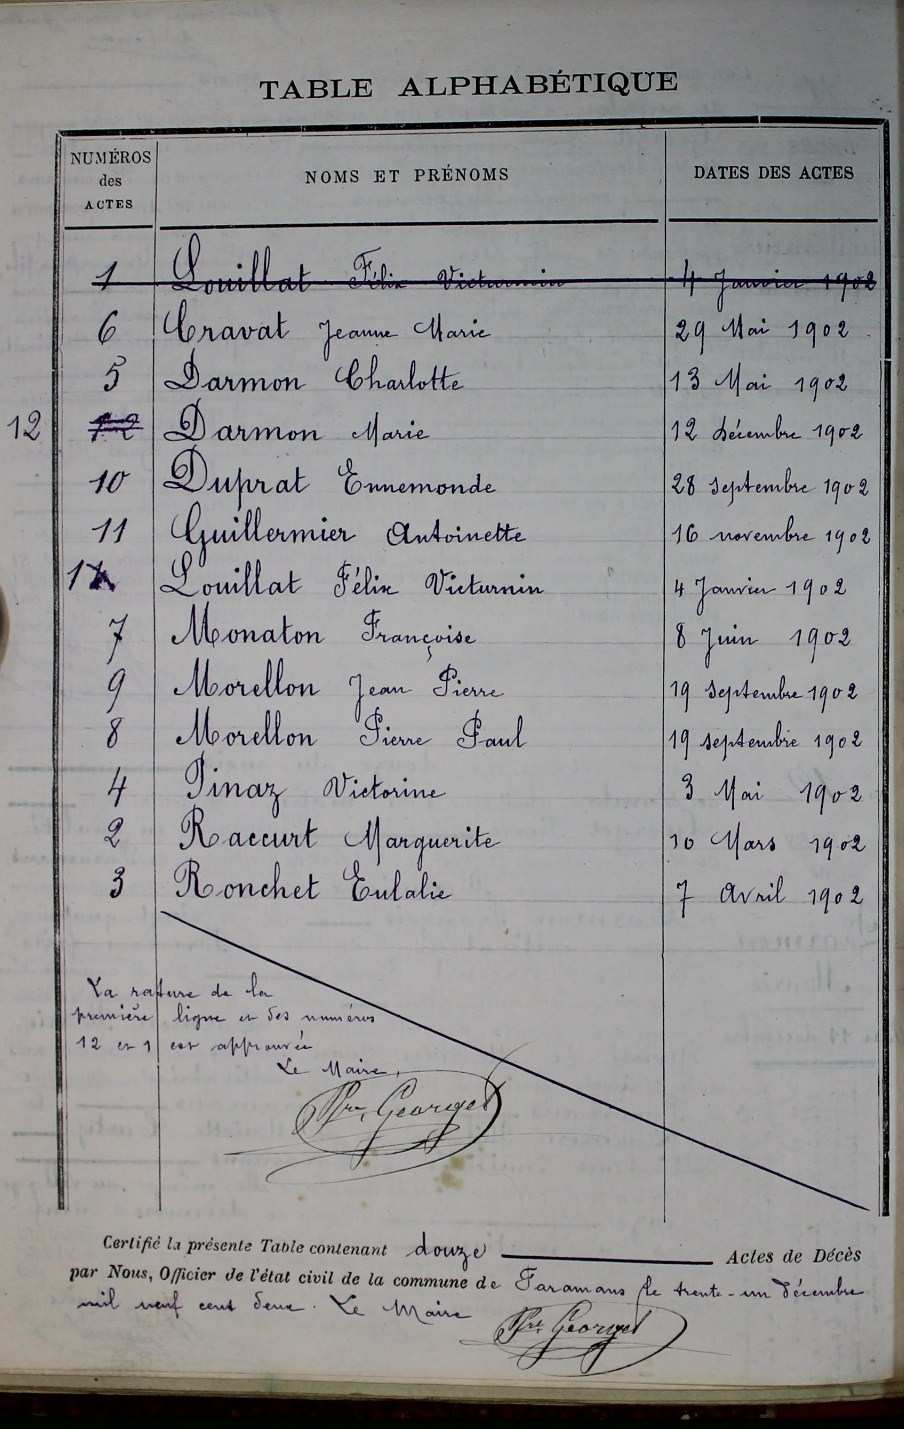 TABLE ALPHABÉTIQUE
NUMÉROS des ACTES NOMS ET PRÉNOMS DATES DES ACTES
1 Louillat Félix Victurnin 4 Janvier 1902
6 Cravat Jeanne Marie 29 Mai 1902
5 Darmon Charlotte 13 Mai 1902
12 12 Darmon Marie 12 Décembre 1902
10 Duprat Ennemonde 28 septembre 1902
11 Guillermier Antoinette 16 novembre 1902
1 Louillat Félix Victurnin 4 Janvier 1902
7 Monaton Françoise 8 Juin 1902
9 Morellon Jean Pierre 19 septembre 1902
8 Morellon Pierre Paul 19 septembre 1902
4 Pinaz Victorine 3 Mai 1902
2 Raccurt Marguerite 10 Mars 1902
3 Ronchet Eulalie 7 Avril 1902
La rature de la
première ligne et des numéros
12 et 1 est approuvée
Le Maire,
Georges
Certifié la présente Table contenant douze Actes de Décès
par Nous, Officier de l'état civil de la commune de Faramans le trente-un Décembre
mil neuf cent deux. Le Maire
Georges